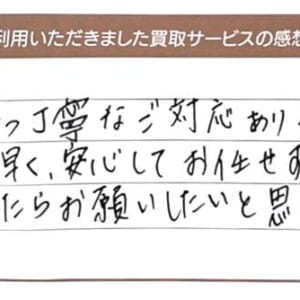 利用いただきました買取サービスの感想
つ丁寧なご対応あり
早く、安心してお任せす
たらお願いしたいと思